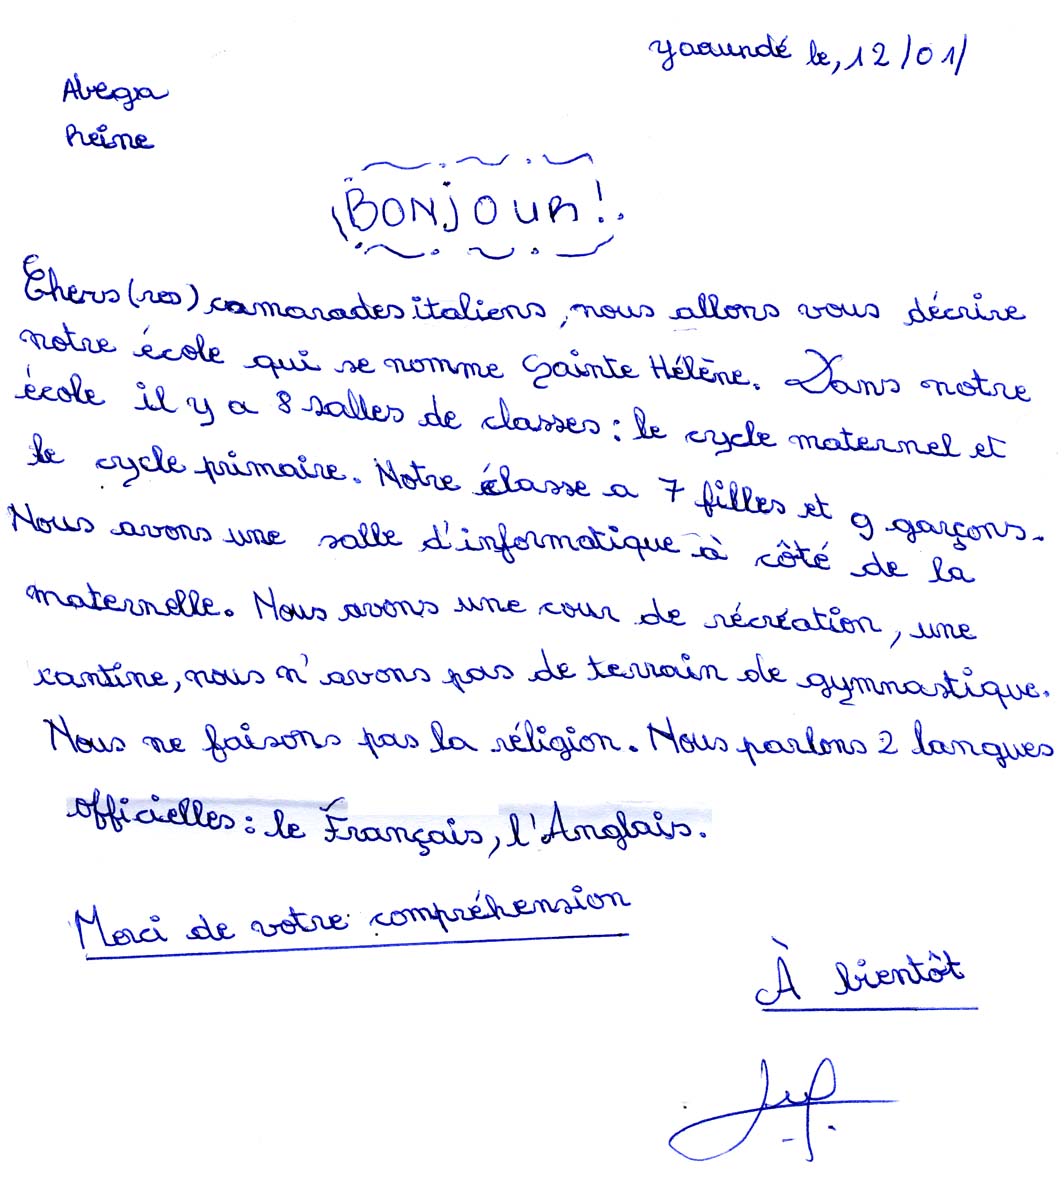 Yaoundé le, 12/01/
Abega
Reine
BONJOUR!
Chers(res) camarades italiens, nous allons vous décrire
notre école qui se nomme Sainte Hélène. Dans notre
école il y a 8 salles de classes : le cycle maternel et
le cycle primaire. Notre classe a 7 filles et 9 garçons.
Nous avons une salle d'informatique à côté de la
maternelle. Nous avons une cour de récréation, une
cantine, nous n'avons pas de terrain de gymnastique.
Nous ne faisons pas la réligion. Nous parlons 2 langues
officielles : le Français, l'Anglais.
Merci de votre compréhension
À bientôt